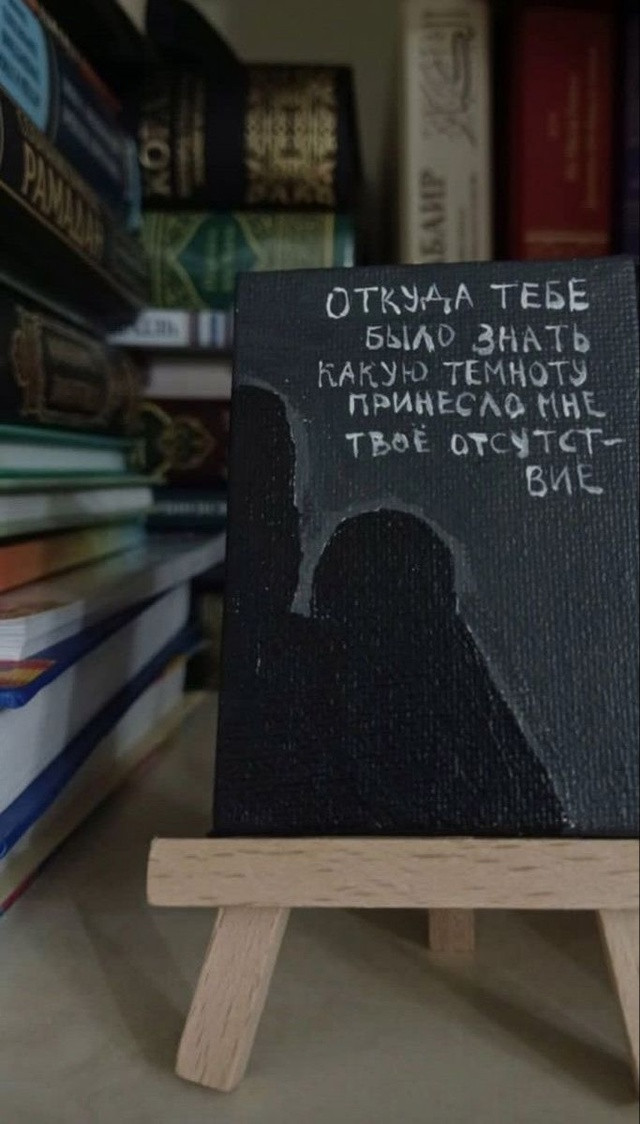 ОТКУДА ТЕБЕ
БЫЛО ЗНАТЬ
КАКУЮ ТЕМНОТУ
ПРИНЕСЛО МНЕ
ТВОЁ ОТСУТСТ-
ВИЕ
РАМАДАН